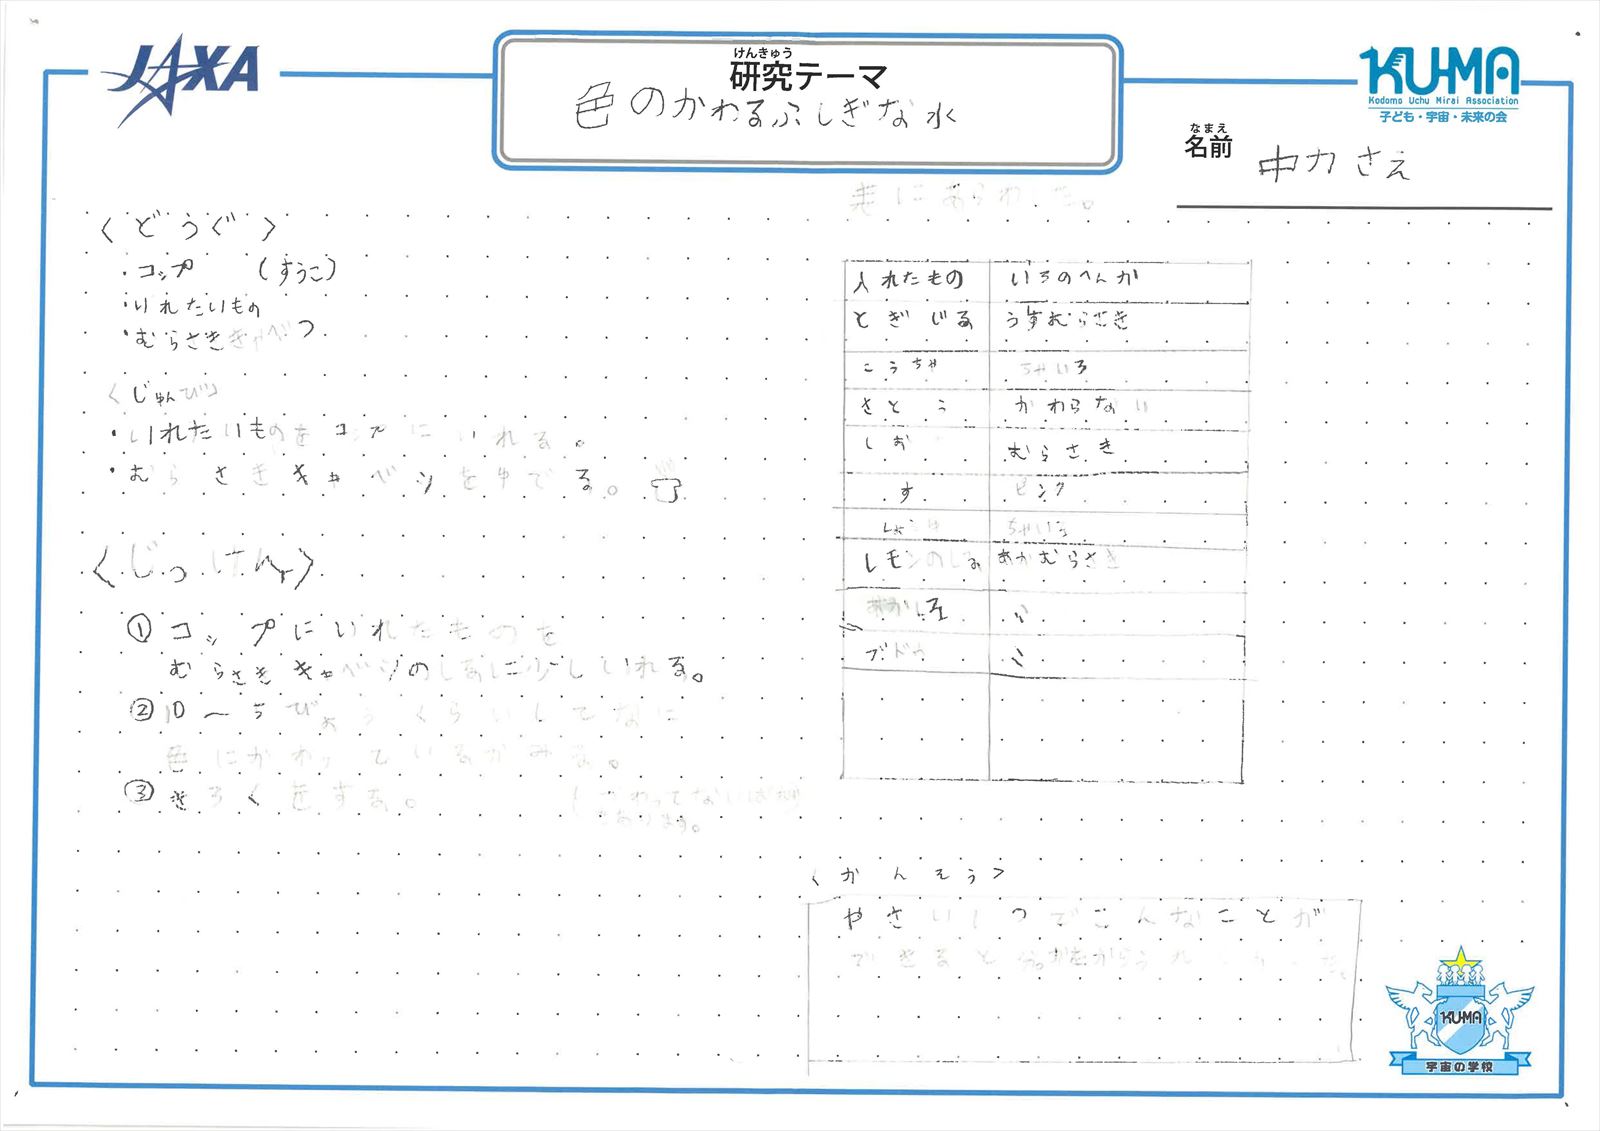 JAXA
けんきゅう
研究テーマ
色のかわるふしぎな水
KUMA
Kodomo Uchu Mirai Association
子ども・宇宙・未来の会
なまえ
名前
中力さえ
〈どうぐ〉
・コップ (すうこ)
・いれたいもの
・むらさききゃべつ
〈じゅんび〉
・いれたいものをコップにいれる。
・むらさきキャベツをゆでる。
〈じっけん〉
① コップにいれたものを
むらさきキャベツのしるに少しいれる。
② 10〜5びょうくらいしてなに
色にかわっているかみる。
③ きろくをする。
かわってないば
もあります。
表にあらわした。
入れたもの いろのへんか
とぎじる うすむらさき
こうちゃ ちゃいろ
さとう かわらない
しお むらさき
す ピンク
しょうゆ ちゃいろ
レモンのしる あかむらさき
〃
ブドウ 〃
〈かんそう〉
やさい1つでこんなことが
できると分かったからうれしかった。
KUMA
宇宙の学校